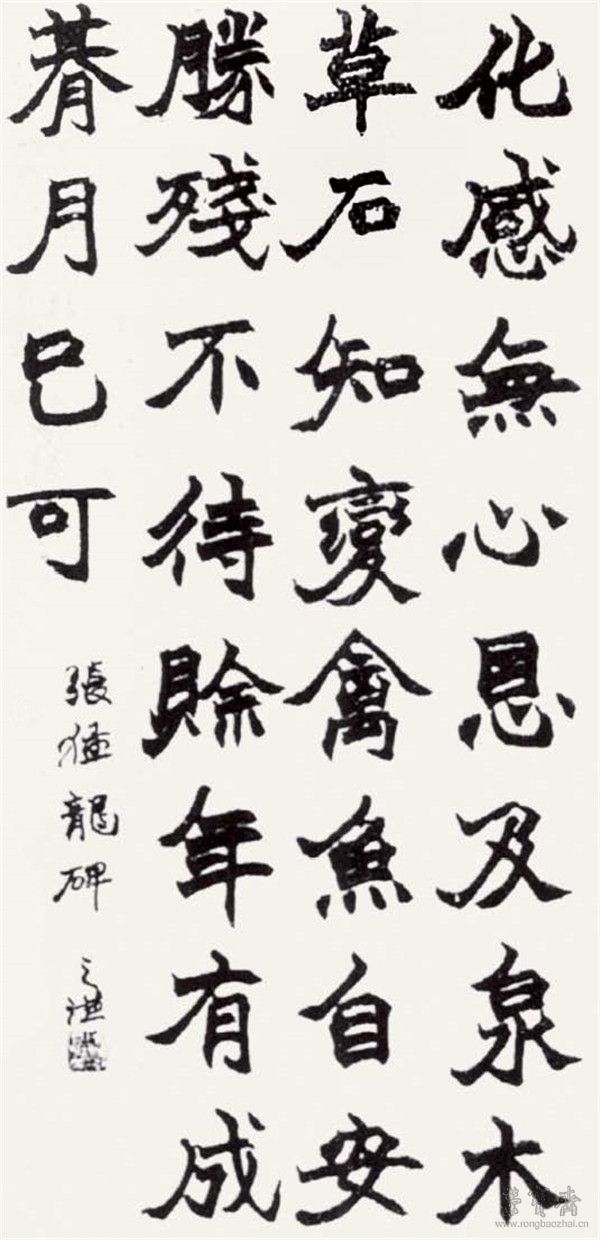 化感無心恩及泉木
草石知變禽魚自安
勝殘不待賒年有成
朞月已可
張猛龍碑
榮寶齋
www.rongbaozhai.cn